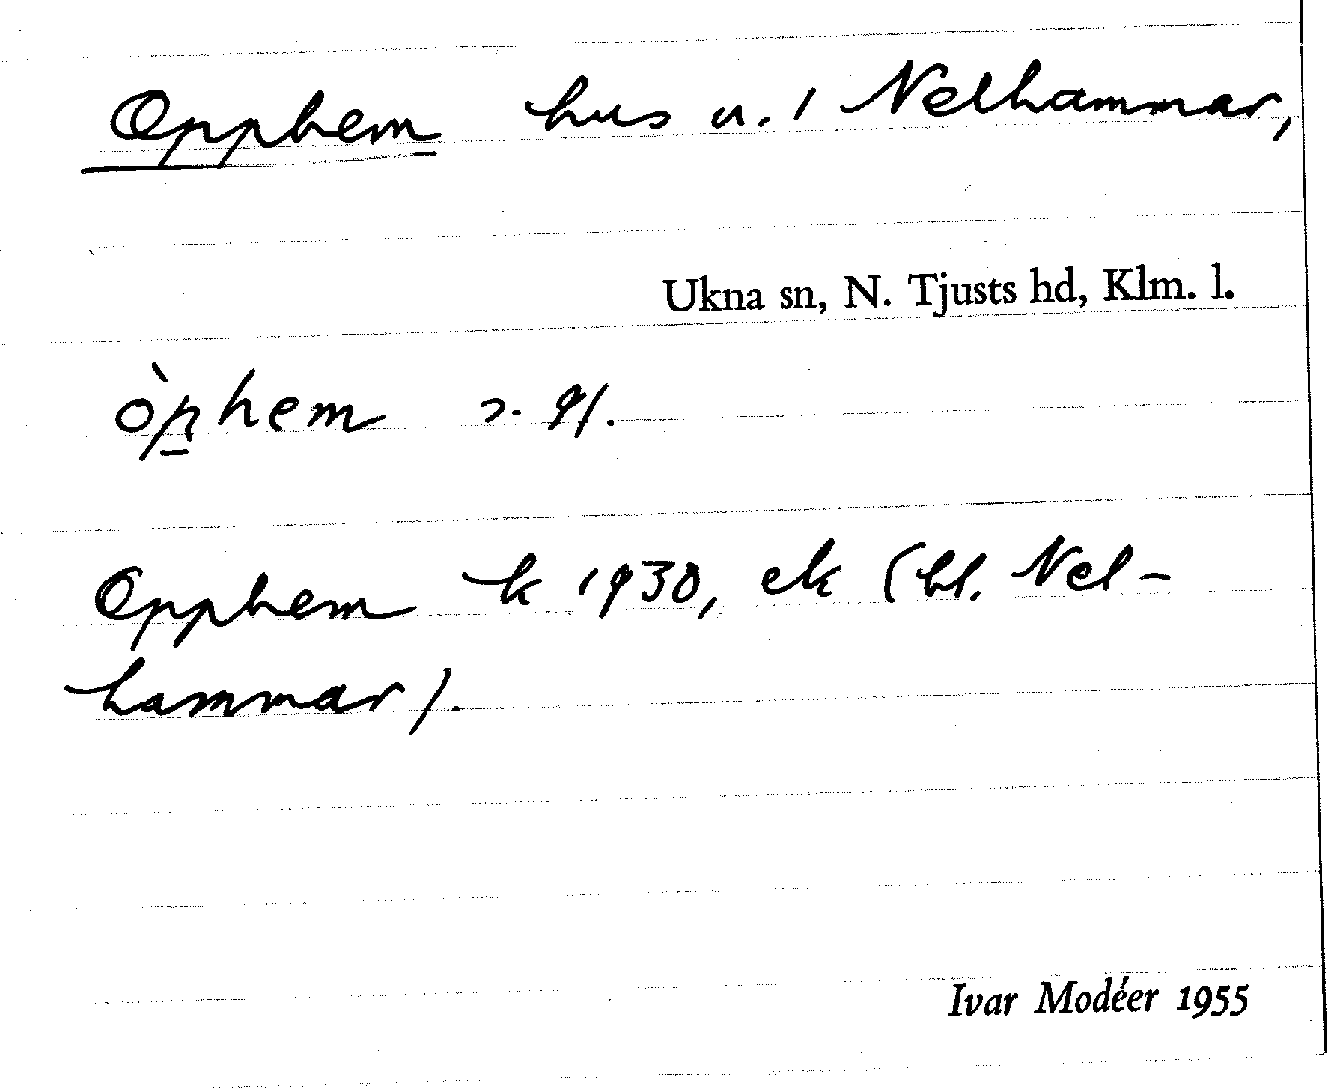 Opphem hus u. 1 Nelhammar,
Ukna sn, N. Tjusts hd, Klm. l.
òphem
Opphem k 1930, ek (bl. Nel-
hammar).
Ivar Modéer 1955